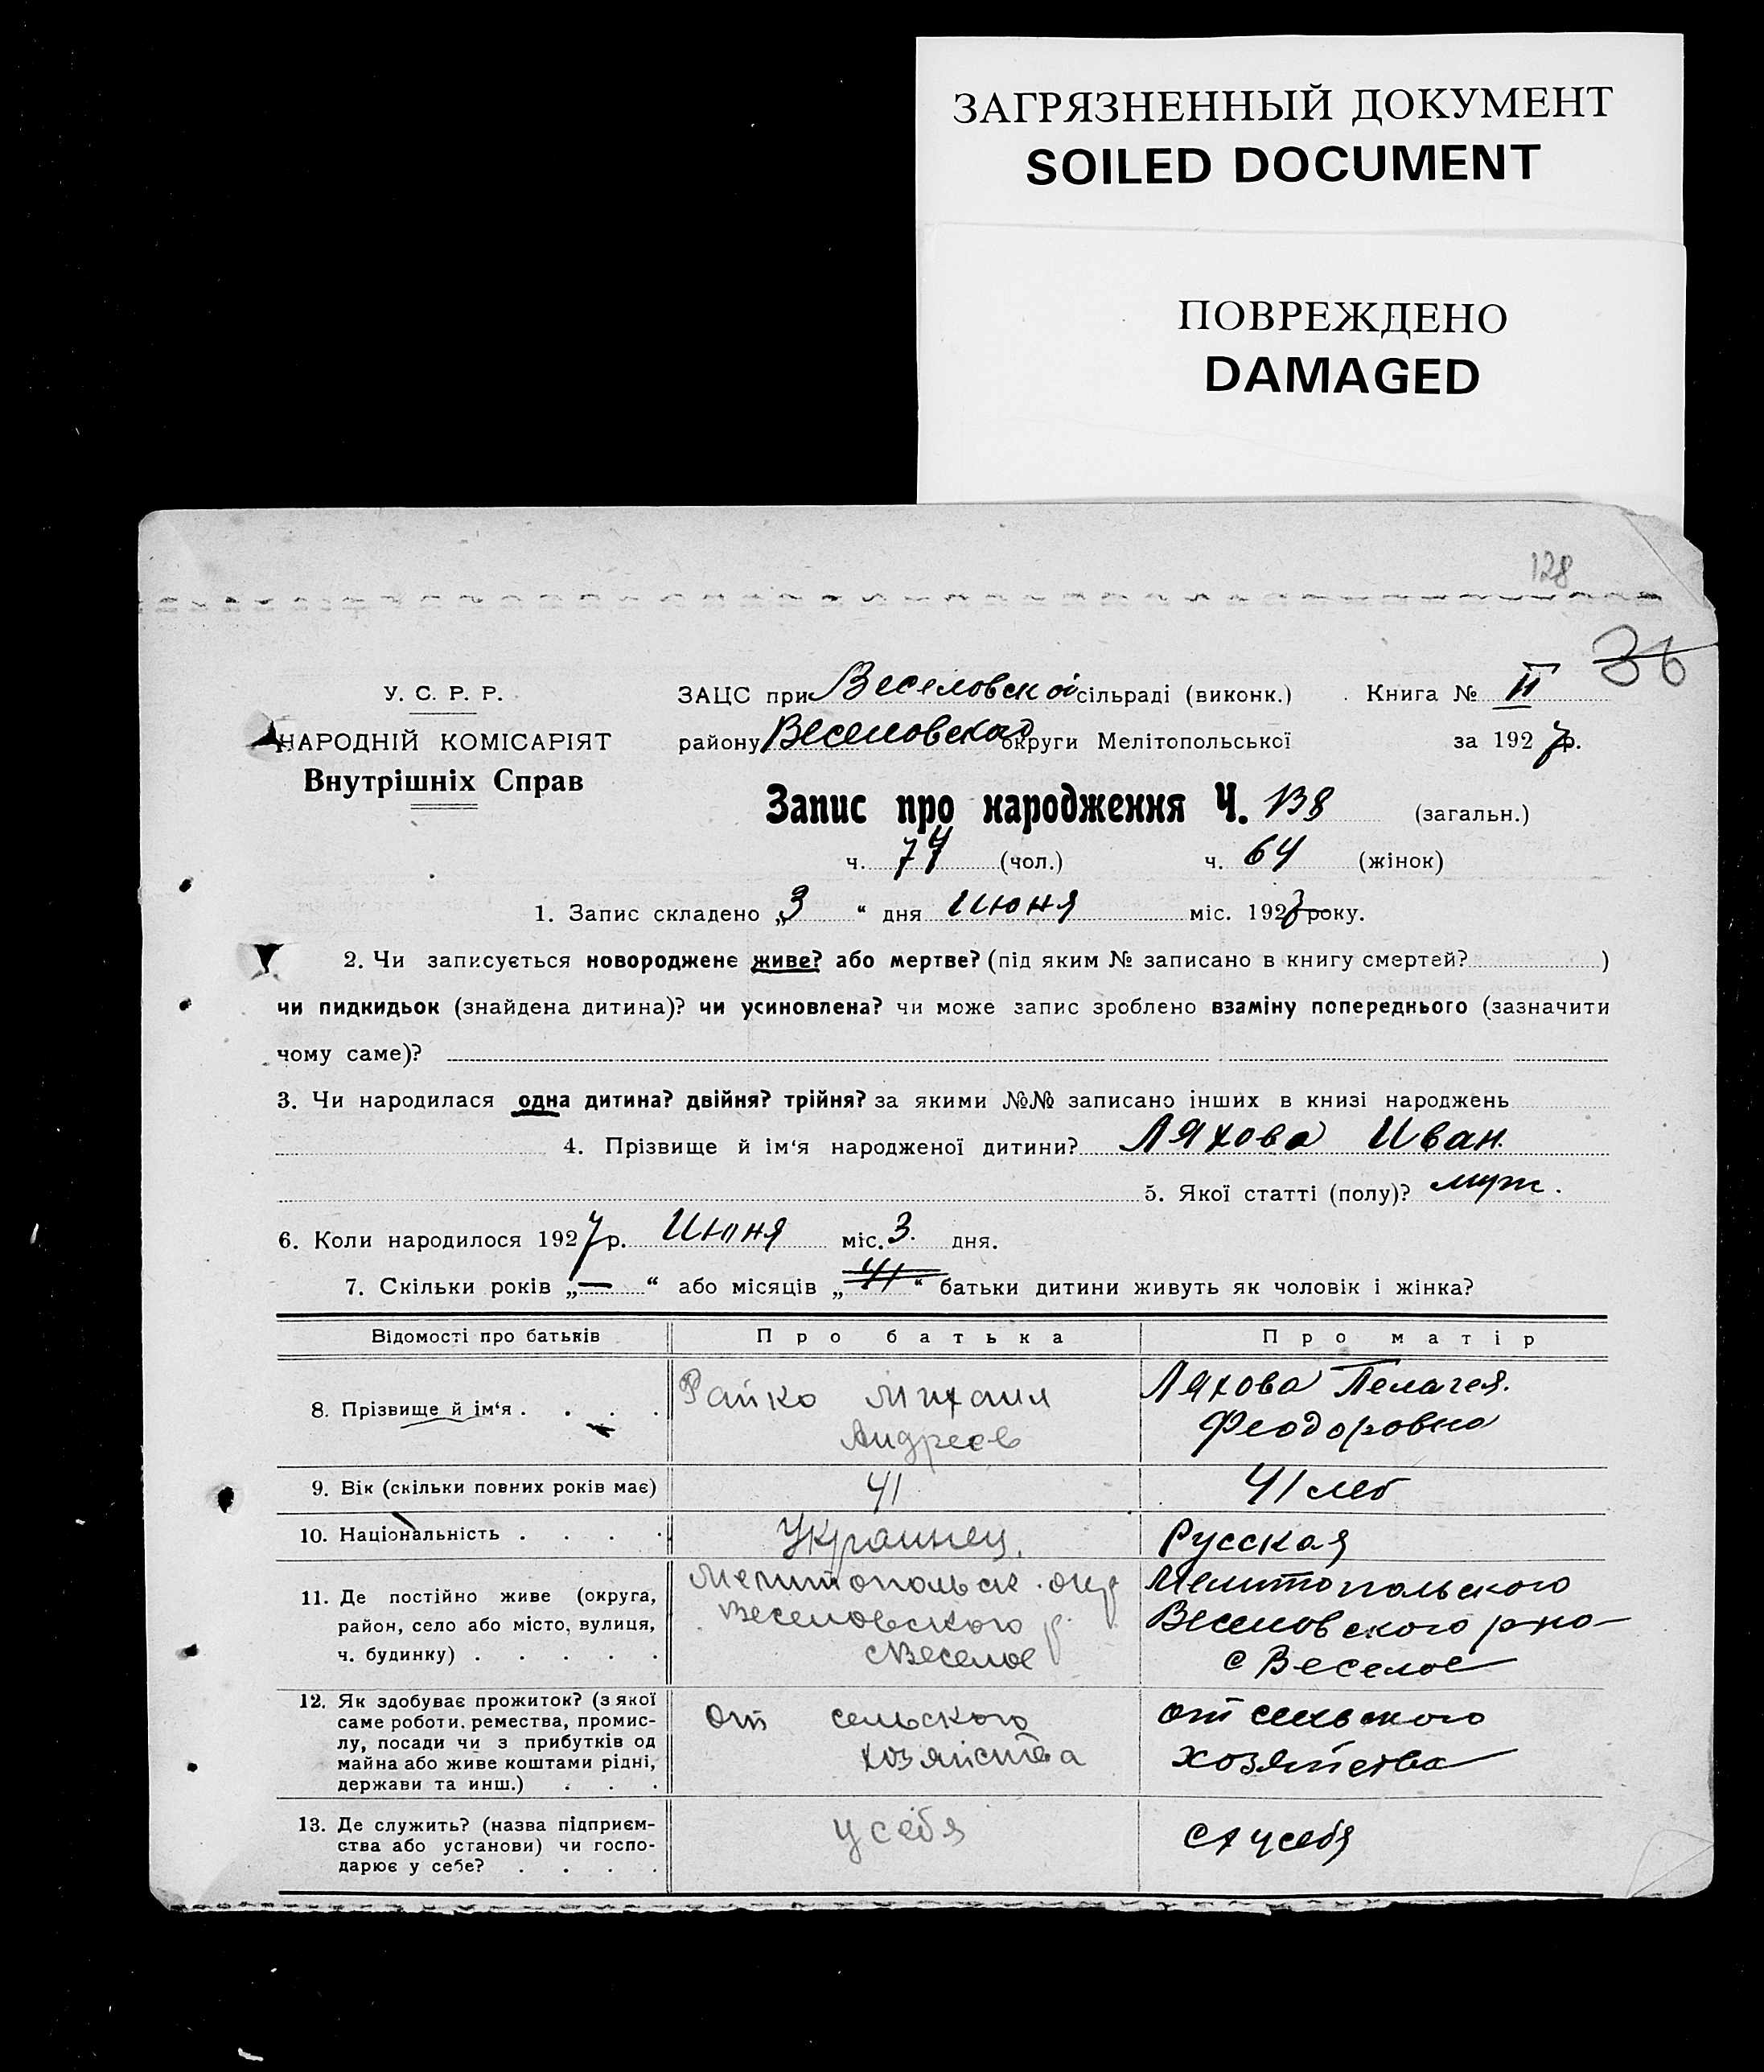 ЗАГРЯЗНЕННЫЙ ДОКУМЕНТ
SOILED DOCUMENT
ПОВРЕЖДЕНО
DAMAGED
128
36
У. С. Р. Р.
НАРОДНІЙ КОМІСАРІЯТ
Внутрішніх Справ
ЗАЦС при Веселовской сільраді (виконк.) Книга № II
району Веселовского округи Мелітопольської за 1927 р.
Запис про народження Ч. 138 (загальн.)
ч. 74 (чол.) ч. 64 (жінок)
1. Запис складено „3“ дня Июня міс. 1927 року.
2. Чи записується новороджене живе? або мертве? (під яким № записано в книгу смертей? )
чи пидкидьок (знайдена дитина)? чи усиновлена? чи може запис зроблено взаміну попереднього (зазначити
чому саме)?
3. Чи народилася одна дитина? двійня? трійня? за якими №№ записано інших в книзі народжень
4. Прізвище й ім'я народженої дитини? Ляхова Иван.
5. Якої статті (полу)? муж.
6. Коли народилося 1927 р. Июня міс. 3. дня.
7. Скільки років „—“ або місяців „41“ батьки дитини живуть як чоловік і жінка?
Відомості про батьків Про батька Про матір
8. Прізвище й ім'я . . . .
Райко Михаил
Андреев
Ляхова Пелагея.
Феодоровна
9. Вік (скільки повних років має) 41 41 лет
10. Національність . . . . Украинец. Русская
11. Де постійно живе (округа,
район, село або місто, вулиця,
ч. будинку) . . . . .
Мелитопольск. окр
Веселовского р.
с Веселое
Мелитопольского
Веселовского р-на
с Веселое
12. Як здобуває прожиток? (з якої
саме роботи, ремества, промис-
лу, посади чи з прибутків од
майна або живе коштами рідні,
держави та инш.) . . .
От сельского
хозяйства
от сельского
хозяйства
13. Де служить? (назва підприєм-
ства або установи) чи госпо-
дарює у себе? . . . .
у себя
у себя